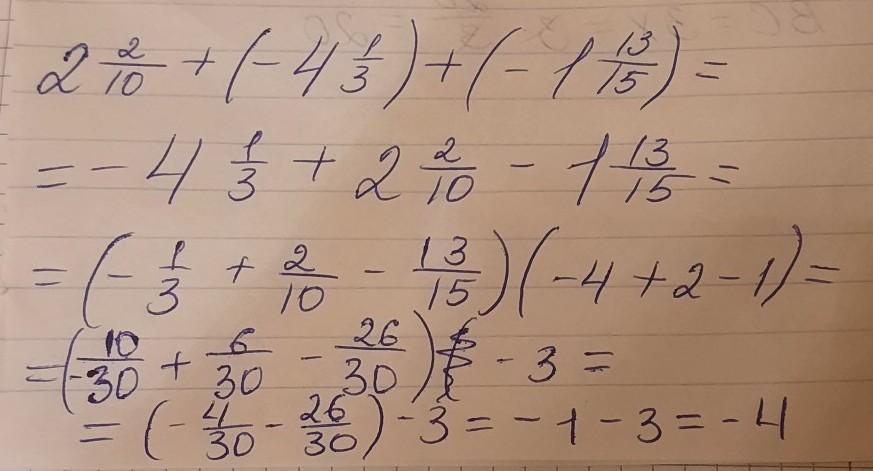 2 2/10 + (- 4 1/3) + (- 1 13/15) =
= - 4 1/3 + 2 2/10 - 1 13/15 =
= (- 1/3 + 2/10 - 13/15) (-4 + 2 - 1) =
= (- 10/30 + 6/30 - 26/30) - 3 =
= (- 4/30 - 26/30) - 3 = - 1 - 3 = - 4